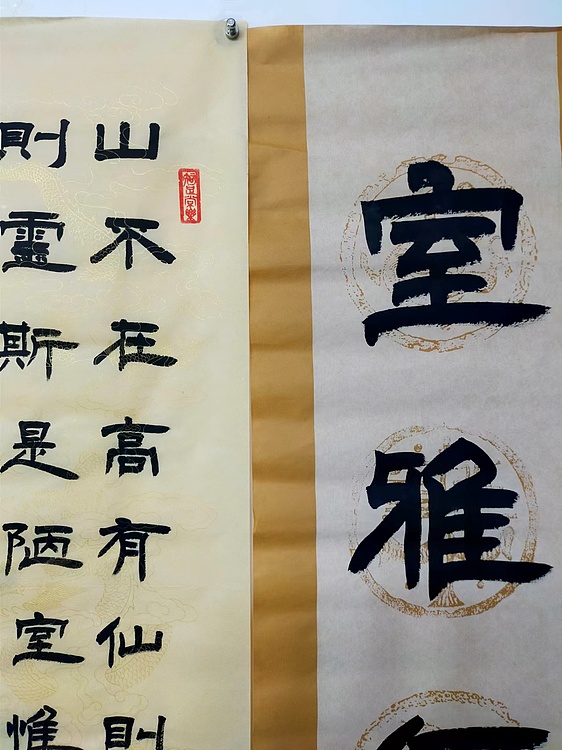 室雅
山不在高有仙則
則靈斯是陋室惟